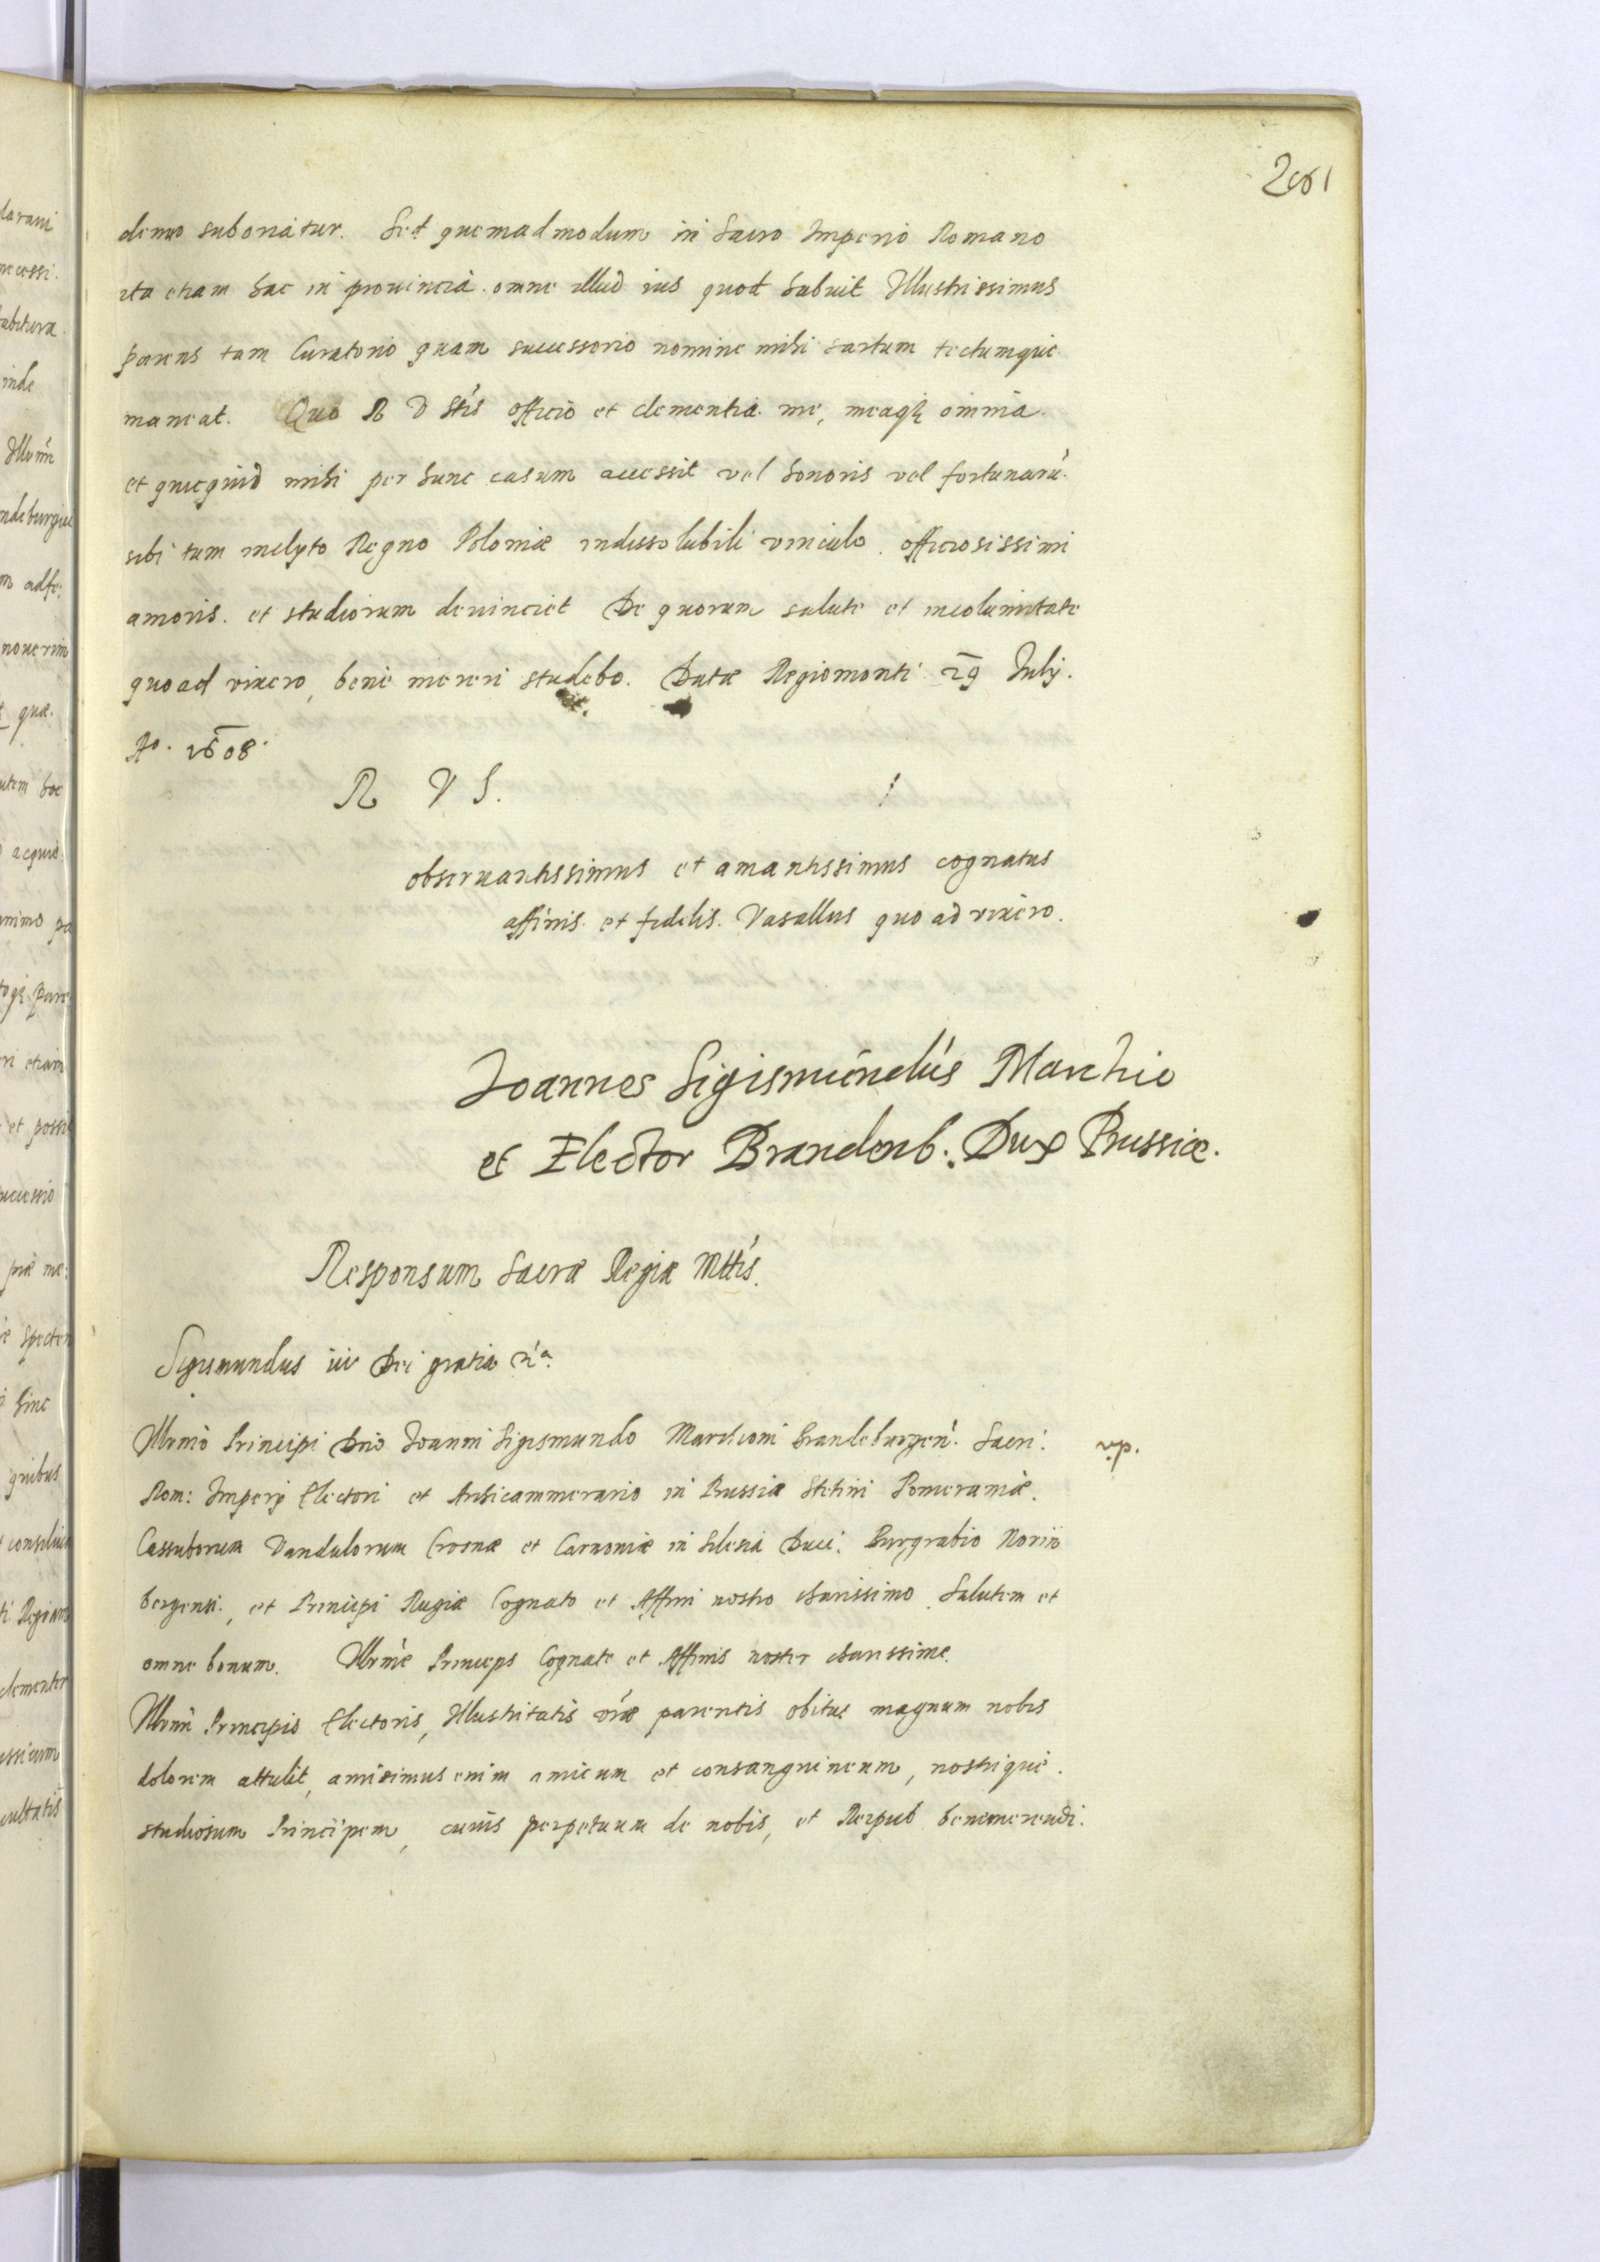 denuo suboriatur. Sed quemadmodum in Sacro Imperio Romano
ita etiam hac in prouincia omne illud ius quod habuit Illustrissimus
parens tam Curatorio quam successorio nomine mihi sartum tectumque
maneat. Quo R V Stis officio et clementia me, meaq; omnia
et quicquid mihi per hunc casum accessit vel honoris vel fortunarū
sibi tum inclyto Regno Poloniæ indissolubili vinculo officiosissimi
amoris et studiorum deuinciet De quorum salute et incolumitate
quoad vixero, bene mereri studebo. Datæ Regiomonti 29 July.
Aº. 1608.
R V S.
obseruantissimus et amantissimus cognatus
affinis et fidelis Vasallus quo ad vixero.
Joannes Sigismundus Marchio
et Elector Brandenb. Dux Prussiæ.
Responsum Sacræ Regiæ Mttis.
Sigismundus iii Dei gratia
Illrmo Principi Dno Joanni Sigismundo Marchioni Brandeburgen. Sacri
Rom: Impery Electori et Archicammerario in Prussia Stetini Pomeraniæ
Cassuborum Vandalorum Crosnæ et Carnouiæ in Silesia Duci. Burgrabio Norim
bergensi, et Principi Rugiæ Cognato et Affini nostro charissimo Salutem et
omne bonum. Illrme Princeps Cognate et Affinis noster charissime.
Illrmi Principis Electoris, Illustritatis vræ parentis obitus magnum nobis
dolorem attulit, amisimus enim amicum et consanguineum, nostrique
studiosum Principem, cuius perpetuum de nobis, et Repub benemerendi